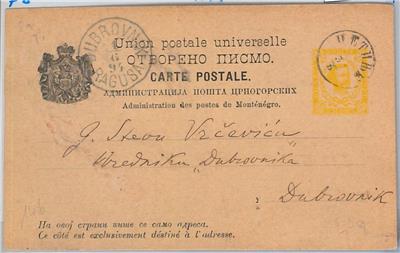 DUBROVNIK
RAGUSA
Union postale universelle
ОТВОРЕНО ПИСМО.
CARTE POSTALE.
АДМИНИСТРАЦИЈА ПОШТА ЦРНОГОРСКИХ
Administration des postes de Monténégro.
ЦЕТИЊЕ
G. Stevu Vrčeviću
Uredniku „Dubrovnika"
Dubrovnik
На овој страни пише се само адреса.
Ce côté est exclusivement déstiné à l'adresse.